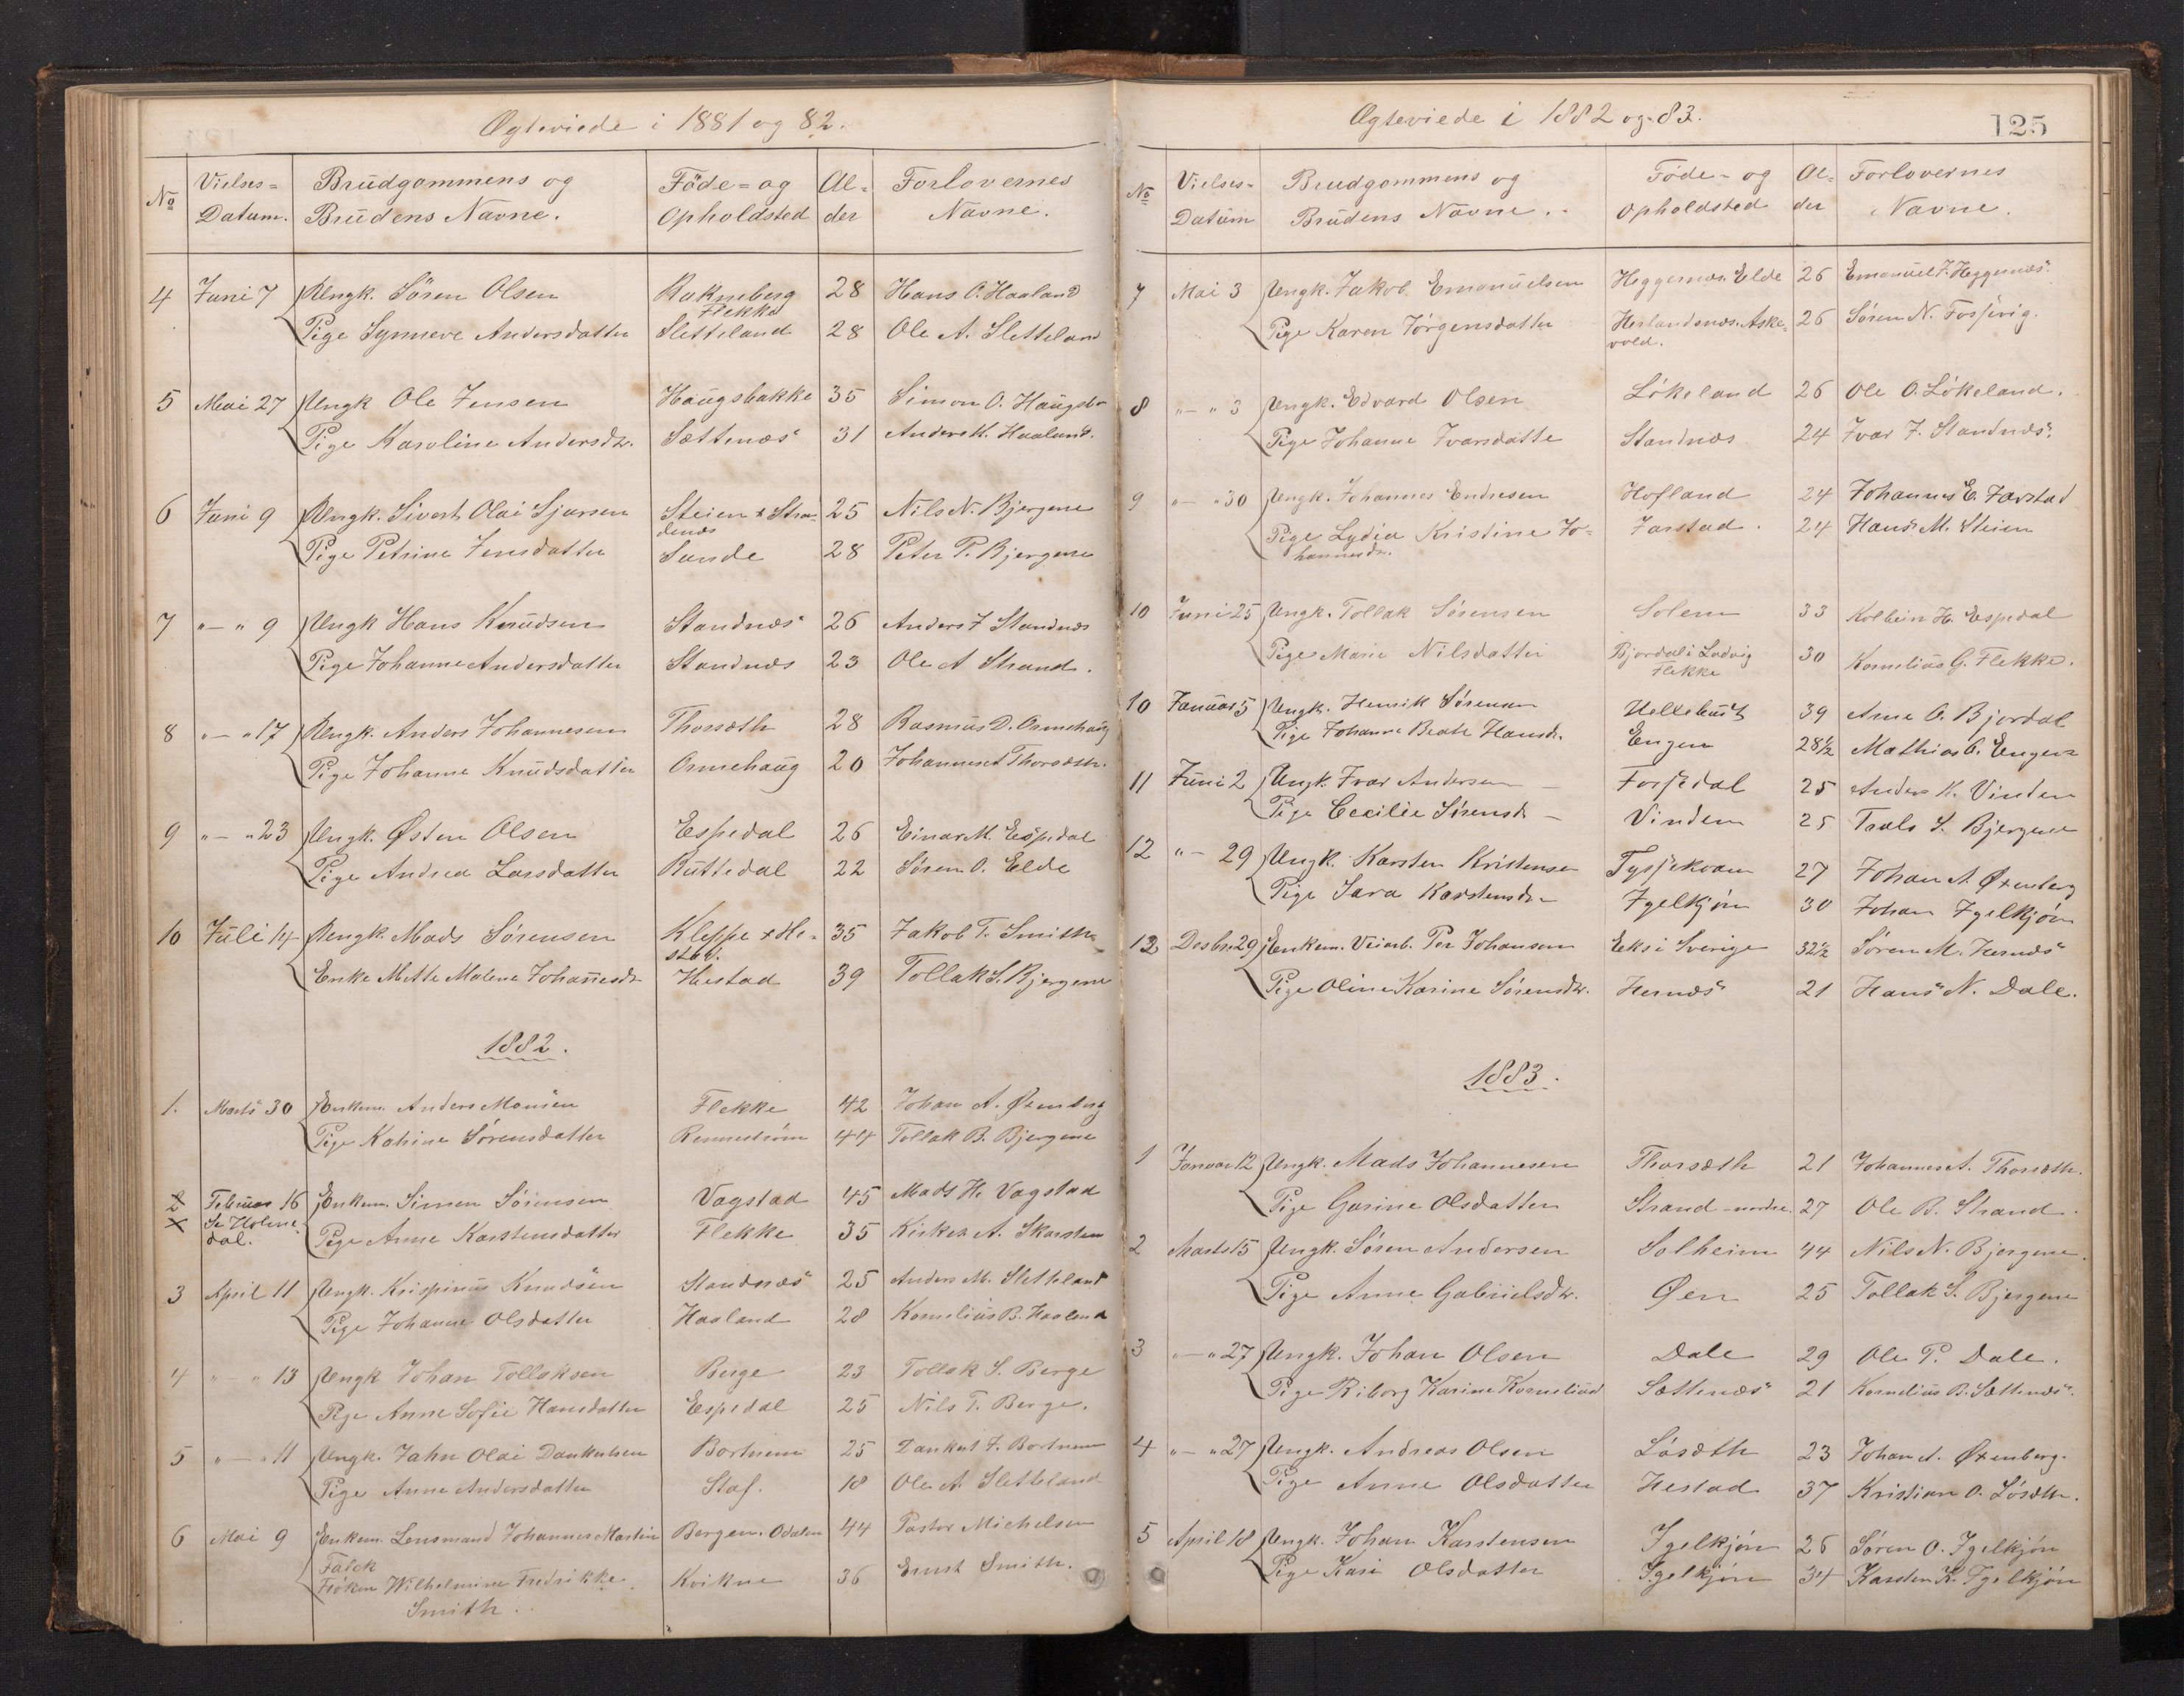 Ægteviede i 1881 og 82.
No Vielses= Datum. Brudgommens og Brudens Navne. Föde= og Opholdsted Al= der Forlovernes Navne.
4 Juni 7 Ungk. Sören Olsen Rakneberg Flekke 28 Hans O. Haaland
Pige Synneve Andersdatter Sletteland 28 Ole A. Sletteland
5 Mai 27 Ungk Ole Jensen Haugsbakke 35 Simon O. Haugsb
Pige Karoline Andersdtr. Sættenæs 31 Anders K. Haaland.
6 Juni 9 Ungk. Sivert Olai Sjursen Steien & Stra= 25 Nils N. Bjergene
denæs
Pige Petrine Jensdatter Sande 28 Peter P. Bjergene
7 " — " 9 Ungk Hans Knudsen Standnæs 26 Anders J Standnæs
Pige Johanne Andersdatter Standnæs 23 Ole A Strand.
8 " — " 17 Ungk. Anders Johannesen Thorsæth 28 Rasmus D. Ormehaug
Pige Johanne Knudsdatter Ormehaug 20 Johannes A Thorsæth.
9 " — " 23 Ungk. Østen Olsen Espedal 26 Einar M. Espedal
Pige Andrea Larsdatter Buttedal 22 Sören O. Elde
10 Juli 14 Ungk. Mads Sörensen Kleppe & He= 35 Jakob T. Smith
stad.
Enke Mette Malene Johannesdr Hestad 39 Tollak S. Bjergene
1882.
1. Marts 30 Enkem. Anders Monsen Flekke 42 Johan A. Øxenberg
Pige Katrine Sörensdatter Rennestrøm 44 Tollak B. Bjergene
2 Februar 16 Enkem. Simen Sörensen Vagstad 45 Mads H. Vagstad
Se Holme
dal. Pige Anne Karstensdatter Flekke 35 A. Skarsten
3 April 11 Ungk. Krispinus Knudsen Standnæs 25 Anders M. Sletteland
Pige Johanne Olsdatter Haaland 28 Kornelius B. Haaland
4 " — " 13 Ungk Johan Tollaksen Berge 23 Tollak S. Berge
Pige Anne Sofie Hansdatter Espedal 25 Nils T. Berge.
5 " — " 11 Ungk. Jahn Olai Dankertsen Bortnem 25 Dankert J. Bortnem
Pige Anne Andersdatter Staf. 18 Ole A. Sletteland
6 Mai 9 Enkem. Lensmand Johannes Martin Bergen. Odalen 44 Pastor Michelsen
Falck
Fröken Wilhelmine Fredrikke Kvikne 36 Ernst Smith.
Smith.
Ægteviede i 1882 og 83.
125
No Vielses= Datum Brudgommens og Brudens Navne. Föde= og Opholdsted Al= der Forlovernes Navne.
7 Mai 3 Ungk. Jakob Emanuelsen Heggernæs. Elde 26 Emanuel J. Heggernæs.
Pige Karen Jörgensdatter Herlandsnæs. Aske= 26 Sören N. Fossevig.
vold.
8 " — " 3 Ungk. Edvard Olsen Lökeland 26 Ole O. Lökeland.
Pige Johanne Ivarsdatte Standnæs 24 Ivar J. Standnæs.
9 " — " 30 Ungk. Johannes Endresen Hofland 24 Johannes E. Jarstad
Pige Lydia Kristine Jo= Jarstad. 24 Hans M. Steien
hannesdr.
10 Juni 25 Ungk. Tollak Sörensen Solem 33 Kolbein H. Espedal
Pige Marie Nilsdatter Bjordal i Ladvig 30 Kornelius G. Flekke.
Flekke
10 Januar 5 Ungk. Henrik Sörensen Hellebust 39 Arne O. Bjordal
Pige Johanne Beate Hansdr. Engen 28½ Mathias O. Engen
11 Juni 2 Ungk. Ivar Andersen Fossedal 25 Anders K. Vinden
Pige Cecilie Sörensdr Vinden 25 S. Bjergene
12 " — 29 Ungk. Karsten Kristensen Tyssekvam 27 Johan A. Øxenberg
Pige Sara Karstensdr Igelkjön 30 Johan Igelkjön
13 Desbr. 29 Enkem. Veiarb. Per Johansen Eksi Sverige 32½ Sören M. Hernæs
Pige Oline Karine Sörensdtr. Hernæs 21 Hans N. Dale.
1883.
1 Januar 12 Ungk. Mads Johannesen Thorsæth 21 Johannes A. Thorsæth.
Pige Gurine Olsdatter Strand - nedre. 27 Ole B. Strand.
2 Marts 15 Ungk. Sören Andersen Solheim 44 Nils N. Bjergene.
Pige Anne Gabrielsdtr. Øen 25 Tollak S. Bjergene
3 " — " 27 Ungk. Johan Olsen Dale 29 Ole P. Dale.
Pige Riborg Karine Kornelius Sættenæs 21 Kornelius B. Sættenæs.
4 " — " 27 Ungk. Andreas Olsen Lösæth 23 Johan A. Øxenberg.
Pige Anne Olsdatter Hestad 37 Kristian O. Lösæth.
5 April 18 Ungk. Johan Karstensen Igelkjön 26 Sören O. Igelkjön
Pige Kari Olsdatter Igelkjön 34 Karsten K. Igelkjön